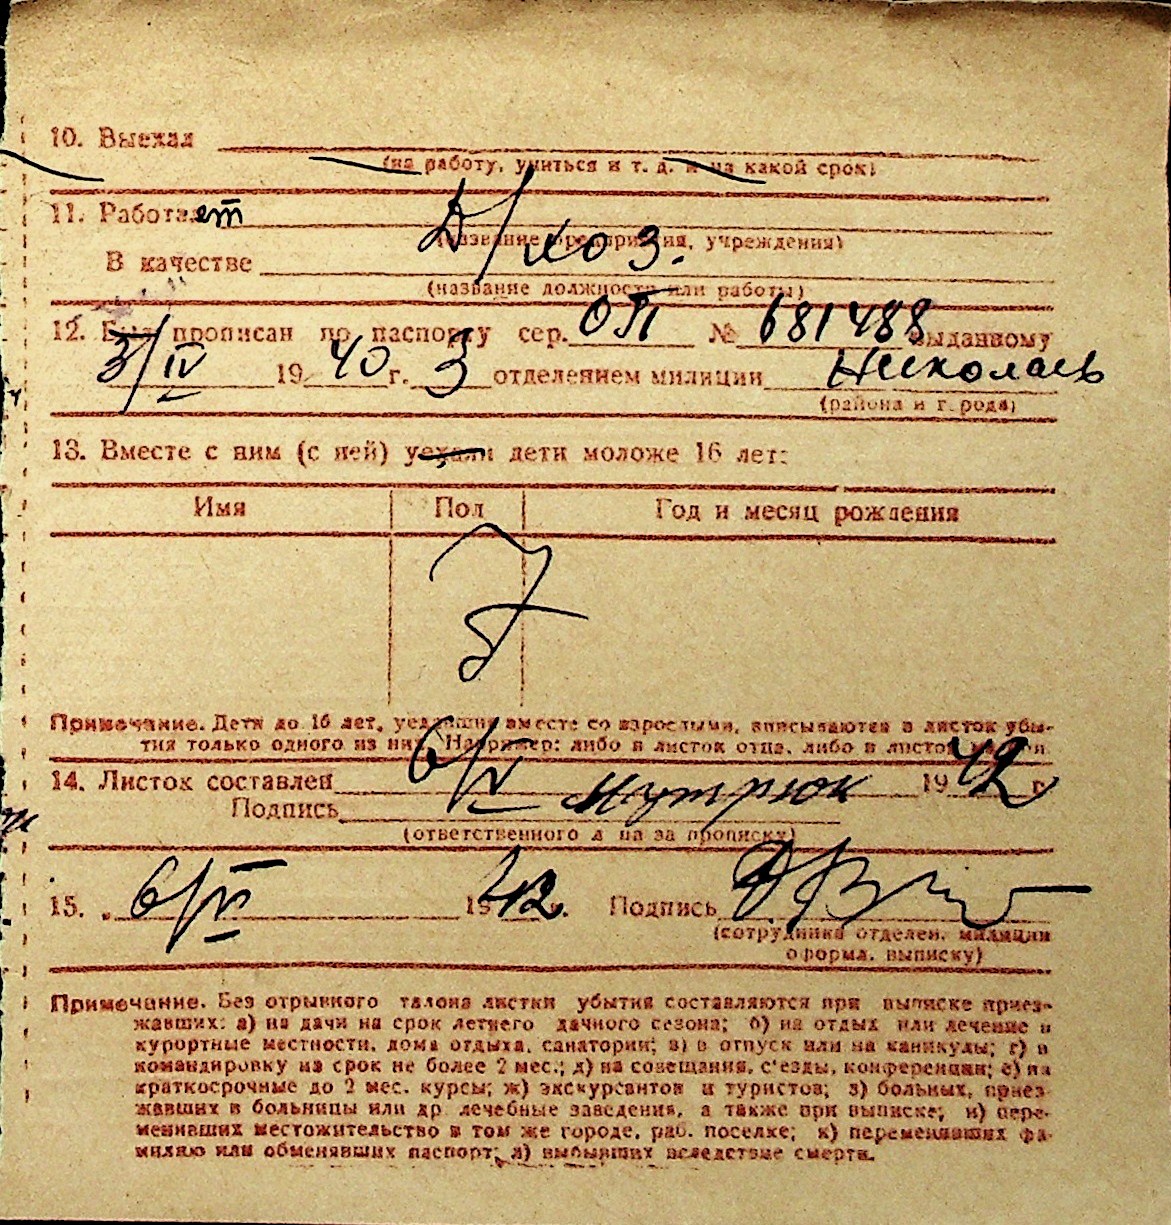 10. Выехал
(на работу, учиться и т. д. и на какой срок)
11. Работает Д/хоз.
(название предприятия, учреждения)
В качестве
(название должности или работы)
12. Был прописан по паспорту сер. ОП № 681488 выданному
5/IV 1940 г. 3 отделением милиции Николаев
(района и города)
13. Вместе с ним (с ней) уехали дети моложе 16 лет:
Имя Пол Год и месяц рождения
Примечание. Дети до 16 лет, уехавшие вместе со взрослыми, вписываются в листок убы-
тия только одного из них. Например: либо в листок отца, либо в листок матери.
14. Листок составлен 6/V 1942 г.
Подпись
(ответственного лица за прописку)
15. 6/V 1942 г. Подпись
(сотрудника отделен. милиции
оформл. выписку)
Примечание. Без отрывного талона листки убытия составляются при выписке приез-
жавших: а) на дачи на срок летнего дачного сезона; б) на отдых или лечение в
курортные местности, дома отдыха, санатории; в) в отпуск или на каникулы; г) в
командировку на срок не более 2 мес.; д) на совещания, с'езды, конференции; е) на
краткосрочные до 2 мес. курсы; ж) экскурсантов и туристов; з) больных, приез-
жавших в больницы или др. лечебные заведения, а также при выписке; и) пере-
менивших местожительство в том же городе, раб. поселке; к) переменивших фа-
милию или обменявших паспорт; л) выбывших вследствие смерти.